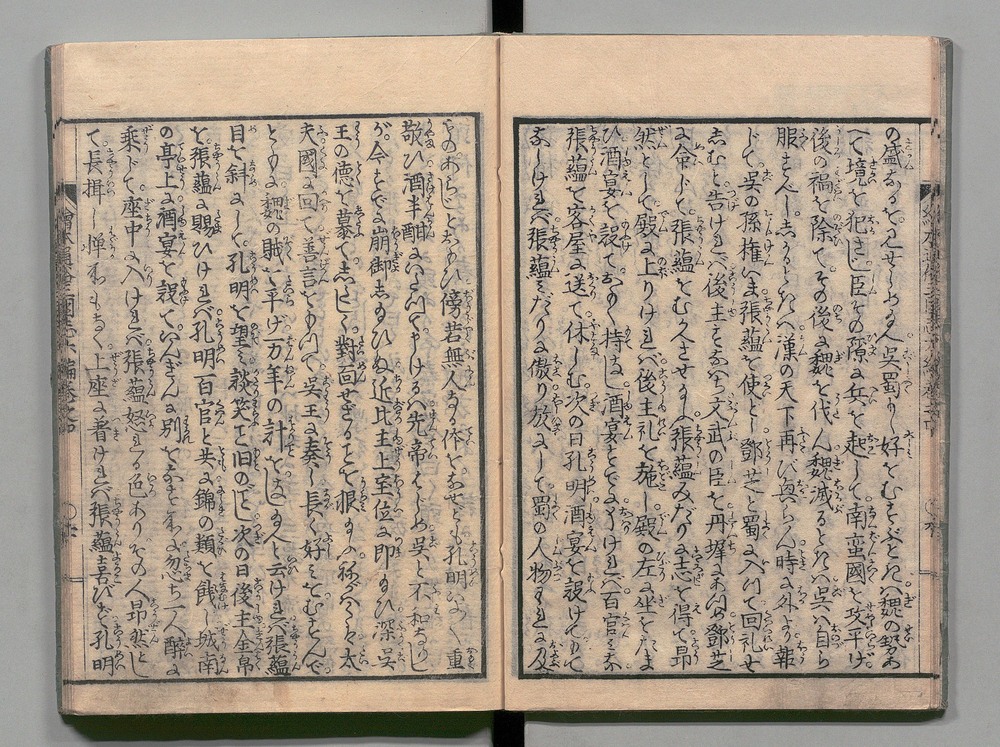 の盛なるを見せしめ給へ呉蜀よし好をむすぶときハ魏の勢あ
へて境を犯さじ臣その隙に兵を起して南蛮國を攻平げ
後の禍を除てその後に魏を伐ん魏滅るときハ呉ハ自ら
服すべししかるときハ漢の天下再び興らん時に外より報
じて呉の孫権いま張蘊を使とし鄧芝と蜀に入つて回礼せ
しむと告けれバ後主すなハち文武の臣を丹墀にあつめ鄧芝
に命じて張蘊をむかへさせ給ふ張蘊みだりに志を得て昂
然として殿に上りけれバ後主礼を施し殿の左に坐せたま
ひ酒宴を設てあつく待なし酒宴すでにをハりけれバ百官ミな
張蘊を客屋に送て休しむ次の日孔明酒宴を設けもて
なしけれバ張蘊ミだりに傲り放にして蜀の人物われに及
ものあらじとおもひ傍若無人なる体をなせども孔明いよ〱重
敬ひ酒半酣にいたつて申けるハ先帝はじめ呉と不和なりし
が今すでに崩御したまひぬ近比主上宝位に即たまひ深く呉
王の徳を慕て久しく對面せざることを恨たまふ称ハくハ太
夫國に回て善言をもつて呉王に奏し長く好ミをむすんで
ともに魏の賊を平げ万年の計をなし給へと云けれバ張蘊
目を斜にして孔明を望ミ談笑して旧のごとし次の日後主金帛
を張蘊に賜ひけれバ孔明百官と共に錦の類を餞し城南
の亭上に酒宴を設ていんぎんに別をなすところに忽ち一人醉に
乗じて座中に入けれバ張蘊怒る色ありその人昂然とし
て長揖し憚るいろもなく上座に着けれバ張蘊喜びず孔明